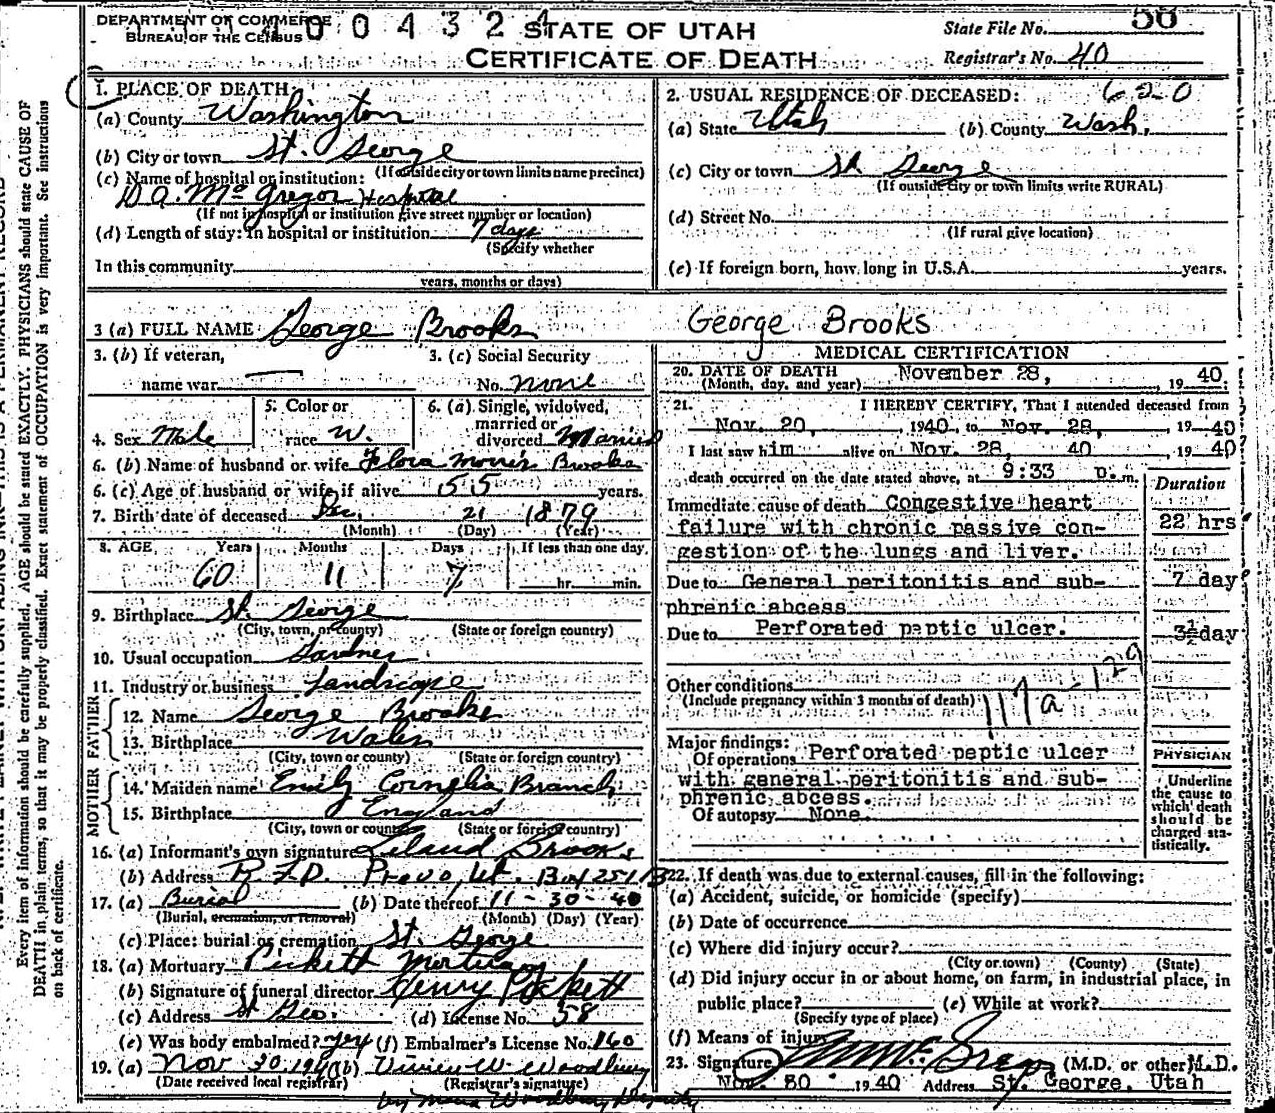 DEPARTMENT OF COMMERCE
BUREAU OF THE CENSUS
0 0 4 3 2 4
STATE OF UTAH
CERTIFICATE OF DEATH
State File No. 50
Registrar's No. 40
1. PLACE OF DEATH:
(a) County Washington
(b) City or town St. George
(If outside city or town limits name precinct)
(c) Name of hospital or institution:
D A. McGregor Hospital
(If not in hospital or institution give street number or location)
(d) Length of stay: In hospital or institution 7 days
(Specify whether
In this community
years, months or days)
2. USUAL RESIDENCE OF DECEASED: 620
(a) State Utah (b) County Wash.
(c) City or town St George
(If outside city or town limits write RURAL)
(d) Street No.
(If rural give location)
(e) If foreign born, how long in U.S.A. years.
3 (a) FULL NAME George Brooks George Brooks
3. (b) If veteran,
name war
3. (c) Social Security
No. none
4. Sex Male
5. Color or
race W.
6. (a) Single, widowed,
married or
divorced Married
6. (b) Name of husband or wife Flora Morris Brooks
6. (c) Age of husband or wife if alive 55 years.
7. Birth date of deceased Dec. 21 1879
(Month) (Day) (Year)
8. AGE Years Months Days If less than one day
60 11 7 hr. min.
9. Birthplace St. George
(City, town, or county) (State or foreign country)
10. Usual occupation Gardner
11. Industry or business Landscape
FATHER
12. Name George Brooks
13. Birthplace Wales
(City, town or county) (State or foreign country)
MOTHER
14. Maiden name Emily Cornelia Branch
15. Birthplace England
(City, town or county) (State or foreign country)
16. (a) Informant's own signature Leland Brooks
(b) Address R.F.D. Provo, Ut. Box 251 B
17. (a) Burial (b) Date thereof 11-30-40
(Burial, cremation, or removal) (Month) (Day) (Year)
(c) Place: burial or cremation St. George
18. (a) Mortuary Pickett Mortuary
(b) Signature of funeral director Henry Pickett
(c) Address St Geo. (d) License No. 58
(e) Was body embalmed? yes (f) Embalmer's License No. 160
19. (a) Nov 30, 1940 (b) Vivien W. Woodbury
(Date received local registrar) (Registrar's signature)
by Woodbury Deputy
MEDICAL CERTIFICATION
20. DATE OF DEATH November 28, 19 40.
(Month, day, and year)
21. I HEREBY CERTIFY, That I attended deceased from
Nov. 20, 1940, to Nov. 28, 19 40
I last saw him alive on Nov. 28, 40 19 40
death occurred on the date stated above, at 9:33 p.m.
Duration
Immediate cause of death Congestive heart
failure with chronic passive con-
gestion of the lungs and liver.
22 hrs
Due to General peritonitis and sub-
phrenic abcess
7 day
Due to Perforated peptic ulcer.
3½ day
Other conditions
(Include pregnancy within 3 months of death)
117a-129
Major findings:
Of operations Perforated peptic ulcer
with general peritonitis and sub-
phrenic abcess.
Of autopsy None.
PHYSICIAN
Underline
the cause to
which death
should be
charged sta-
tistically.
22. If death was due to external causes, fill in the following:
(a) Accident, suicide, or homicide (specify)
(b) Date of occurrence
(c) Where did injury occur?
(City or town) (County) (State)
(d) Did injury occur in or about home, on farm, in industrial place, in
public place? (e) While at work?
(Specify type of place)
(f) Means of injury
23. Signature (M.D. or other) M.D.
Nov 30 1940 Address St. George, Utah
Every item of information should be carefully supplied. AGE should be stated EXACTLY. PHYSICIANS should state CAUSE OF
DEATH in plain terms, so that it may be properly classified. Exact statement of OCCUPATION is very important. See instructions
on back of certificate.